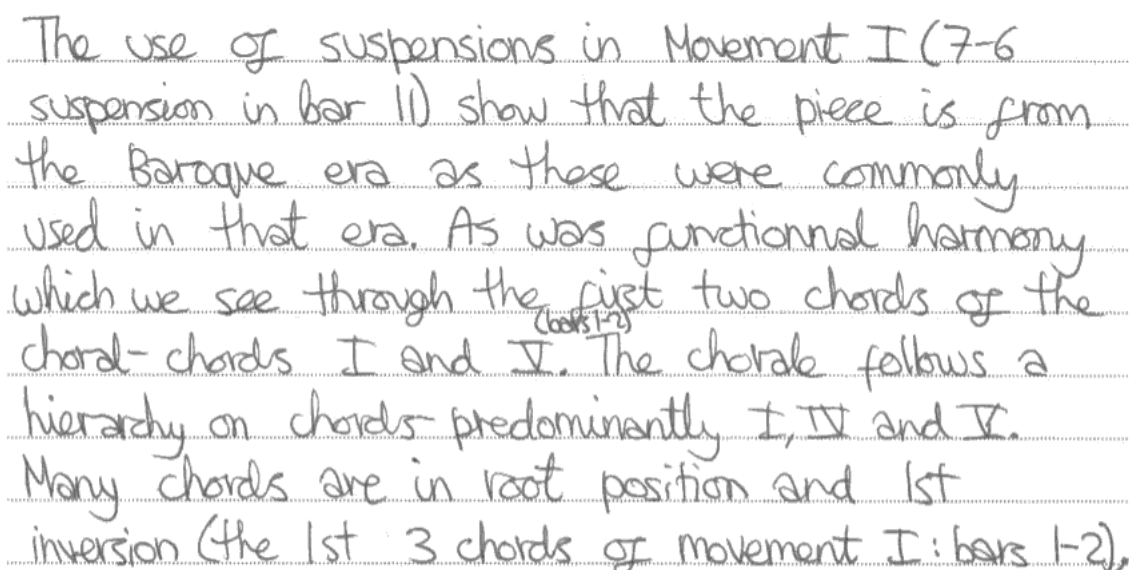 The use of suspensions in Movement I (7-6
suspension in bar 11) show that the piece is from
the Baroque era as these were commonly
used in that era. As was functionnal harmony
which we see through the first two chords of the
(bars 1-2)
choral- chords I and V. The chorale follows a
hierarchy on chords- predominantly I, IV and V.
Many chords are in root position and 1st
inversion (the 1st 3 chords of movement I: bars 1-2).